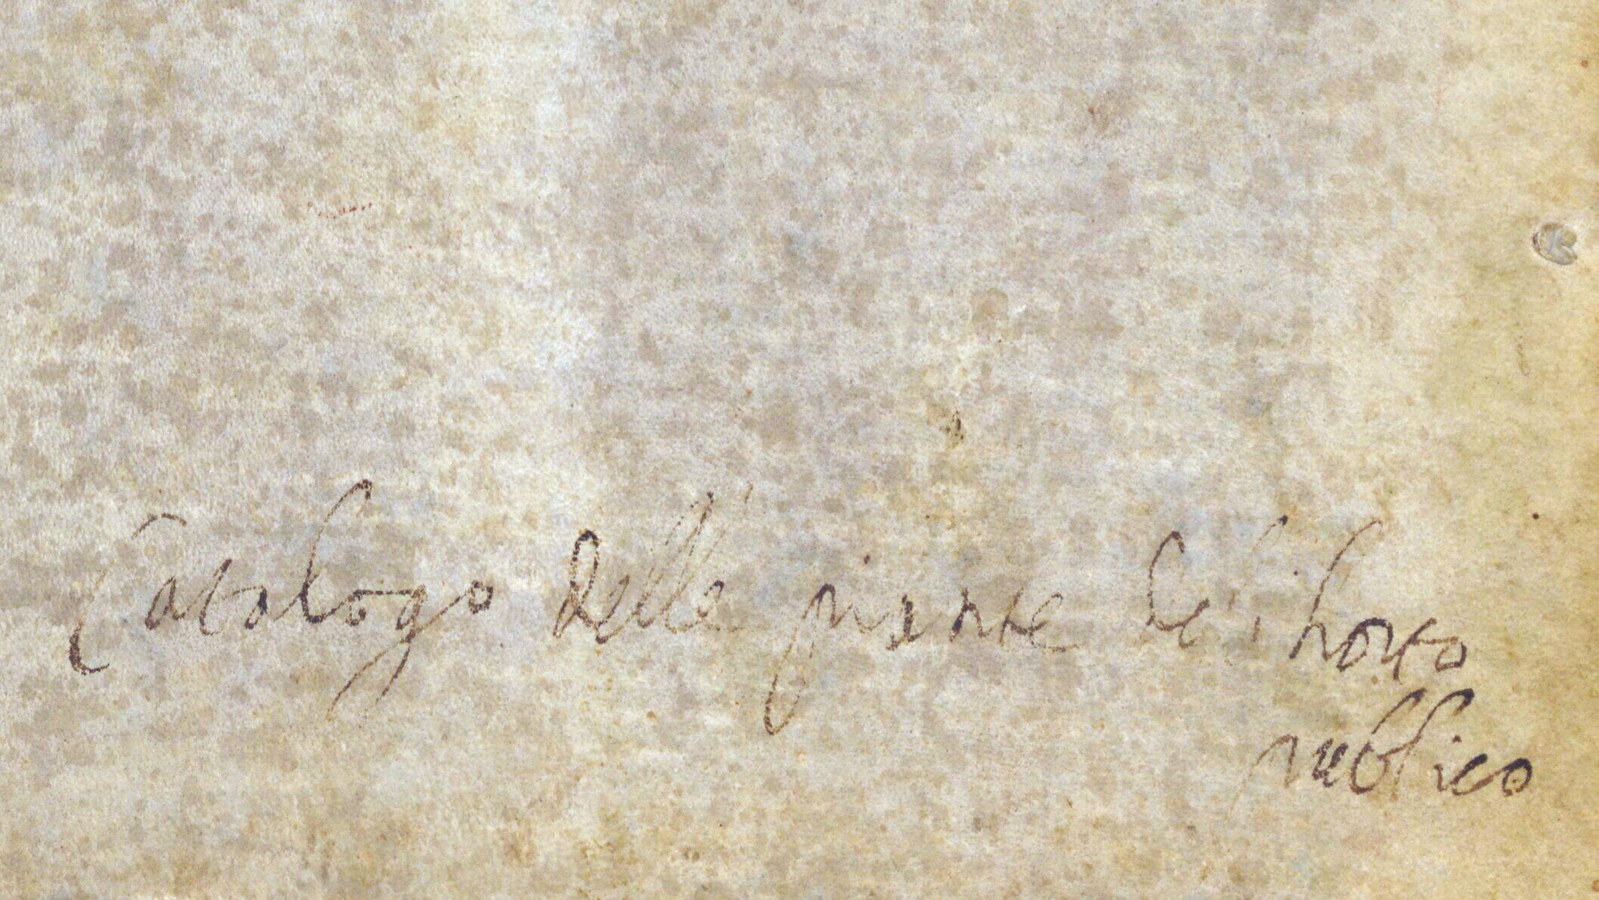 Catalogo delle piante del horto
publico